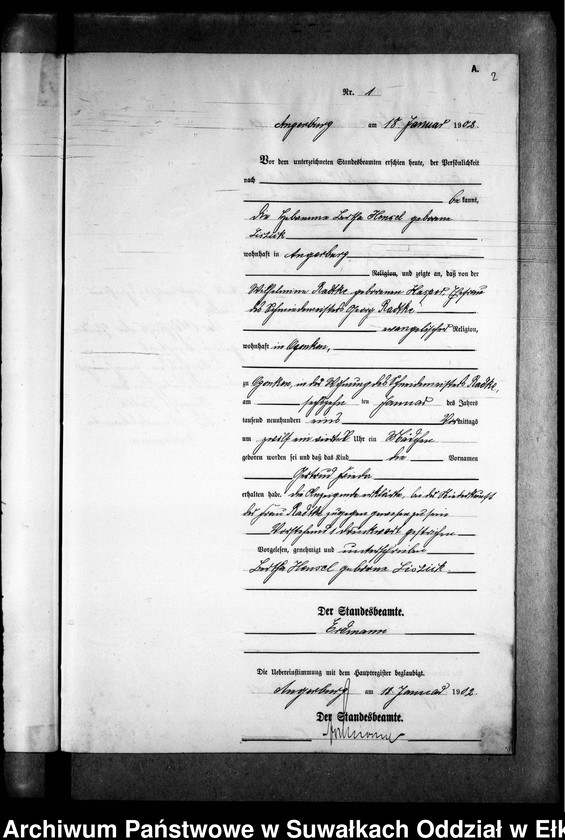 A.
2
Nr. 1
Angerburg am 18 Januar 1902.
Vor dem unterzeichneten Standesbeamten erschien heute, der Persönlichkeit
nach
be kannt,
die Hebamme Bertha Hensel geborene
wohnhaft in Angerburg
Religion, und zeigte an, daß von der
Wilhelmine Radtke geborenen Kasper Ehefrau
des Schneidermeisters Georg Radtke
evangelischer Religion,
wohnhaft in Ogonken,
zu Ogonken, in der Wohnung des Schneidermeisters Radtke,
am sechszehn ten Januar des Jahres
tausend neunhundert Vormittags
um zwölf ein viertel Uhr ein Mädchen
geboren worden sei und daß das Kind die Vornamen
Gertrud Frieda
erhalten habe. die Anzeigende erklärte, bei der Niederkunft
der Frau Radtke zugegen gewesen zu sein
Vorstehend 1 Druckwort gestrichen
Vorgelesen, genehmigt und unterschrieben
Bertha Hensel geborene
Der Standesbeamte.
Erdmann
Die Uebereinstimmung mit dem Hauptregister beglaubigt.
Angerburg am 18 Januar 1902.
Der Standesbeamte.
Archiwum Państwowe w Suwałkach Oddział w Ełk